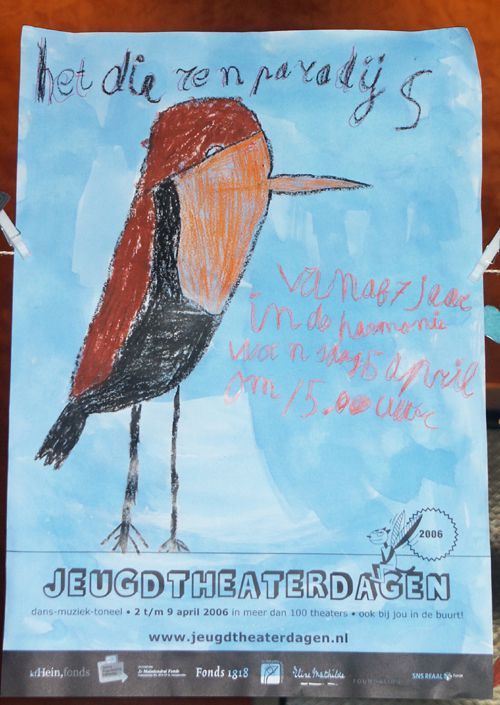 het dierenparadijs
vanaf 7 jaar
in de harmonie
woensdag 5 april
om 15.00 uur
2006
JEUGDTHEATERDAGEN
dans-muziek-toneel • 2 t/m 9 april 2006 in meer dan 100 theaters • ook bij jou in de buurt!
www.jeugdtheaterdagen.nl
Hein,fonds
Fonds 1818
Elise Mathilde
FOUNDATION
SNS REAAL fonds